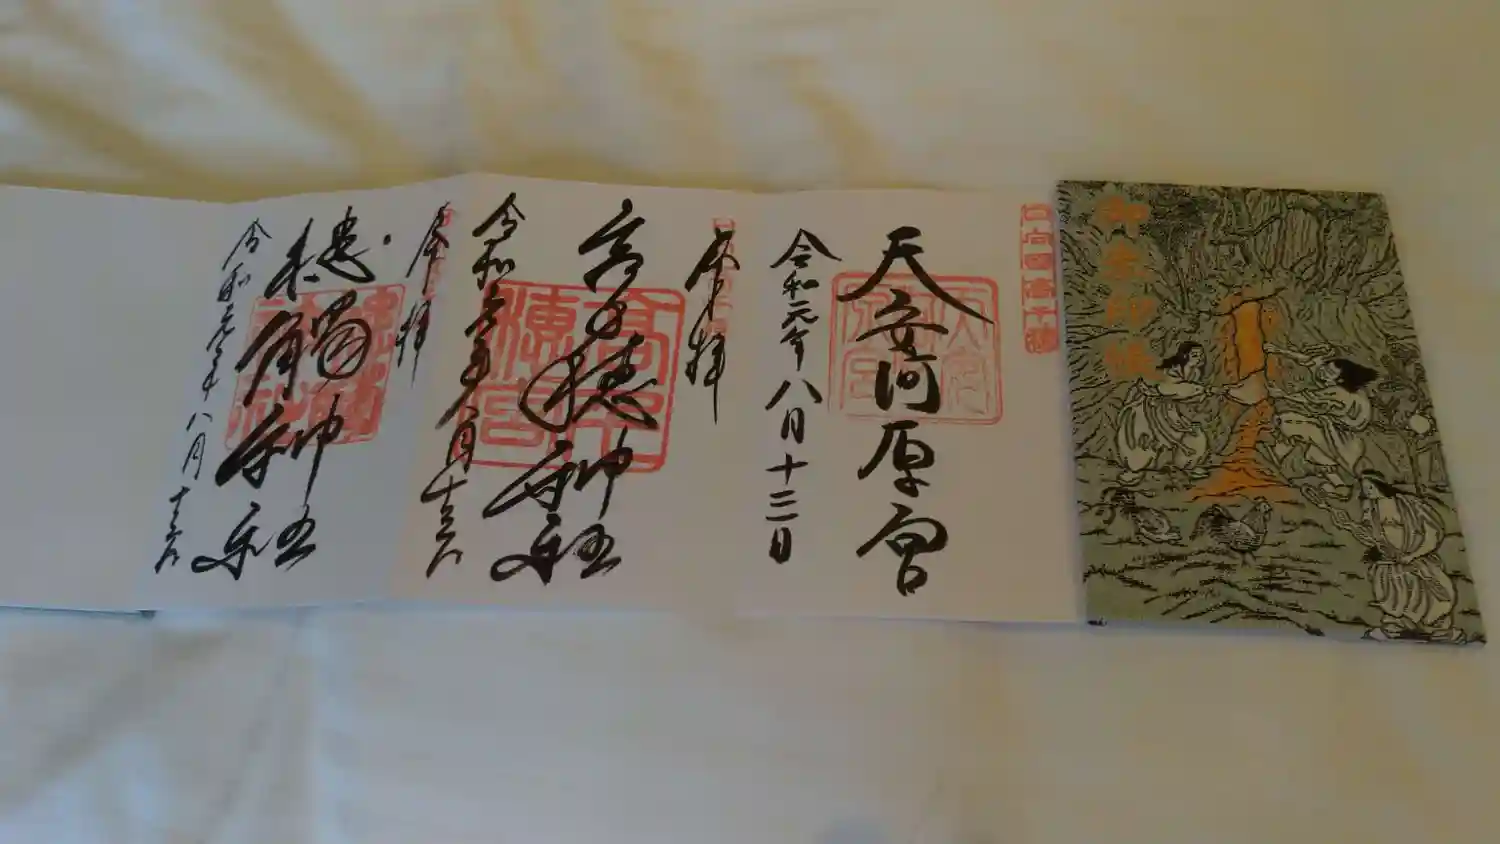 御朱印帳
日向国高千穂
天安河原宮
令和元年八月十三日
奉拝
高千穂神社
令和元年八月十三日
奉拝
槵觸神社
令和元年八月十三日